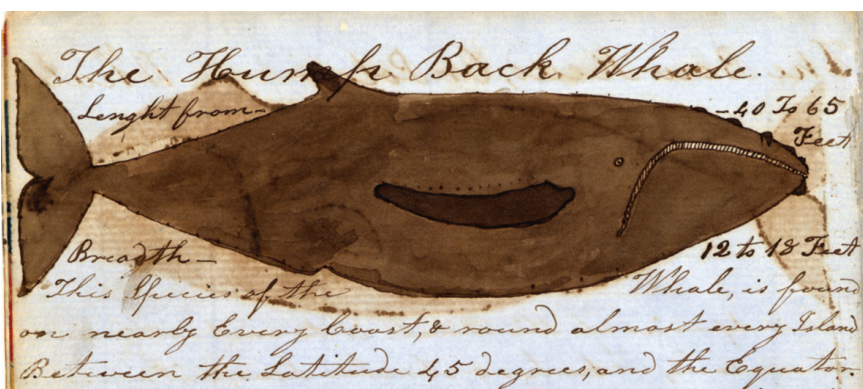 The Hump Back Whale.
Lenght from - - 40 To 65
Feet
Breadth - 12 to 18 Feet
This Species of the Whale, is found
on nearly Every Coast, & round almost every Island
Between the Latitude 45 degrees, and the Equator.